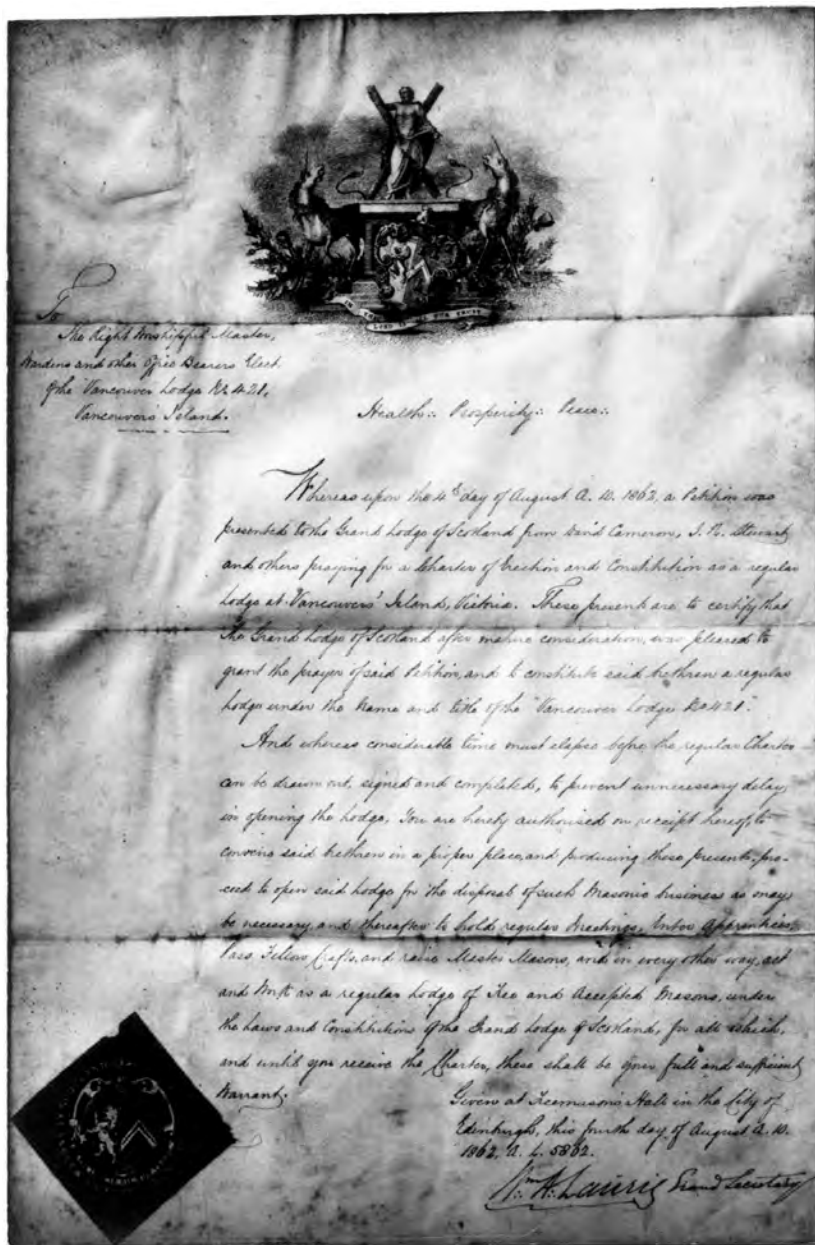 To
The Right Worshipful Master,
Wardens and other Office Bearers Elect
of the Vancouver Lodge No 421,
Vancouver's Island.
Health:. Prosperity:. Peace:.
Whereas upon the 4th day of August A. D. 1862, a Petition was
presented to the Grand Lodge of Scotland from David Cameron, J. R. Stewart
and others praying for a Charter of Erection and Constitution as a regular
Lodge at Vancouvers' Island, Victoria. These present are to certify that
the Grand Lodge of Scotland after mature consideration, was pleased to
grant the prayer of said Petition, and to constitute said brethren a regular
Lodge under the name and title of the "Vancouver Lodge No 421".
And whereas considerable time must elapse before the regular Charter
can be drawn out, signed and completed, to prevent unnecessary delay
in opening the Lodge, You are hereby authorised on receipt hereof, to
convene said brethren in a proper place, and producing these presents, pro-
ceed to open said Lodge for the disposal of such Masonic business as may
be necessary and thereafter to hold regular Meetings, Enter Apprentices,
Pass Fellow Crafts, and raise Master Masons, and in every other way, act
and Work as a regular Lodge of Free and Accepted Masons, under
the Laws and Constitution of the Grand Lodge of Scotland, for all which,
and until you receive the Charter, these shall be your full and sufficient
Warrant.
Given at Freemason's Hall in the City of
Edinburgh, this fourth day of August A. D.
1862, A. L. 5862.
Wm. A. Laurie Grand Secretary